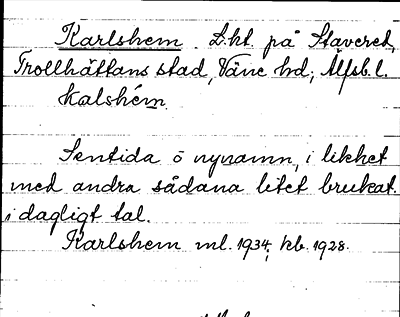 Karlshem. L.ht. på Stavered,
Trollhättans stad, Väne hd; Älfsb. l.
Kalshém.
Sentida ö nynamn, i likhet
med andra sådana litet brukat.
i dagligt tal.
Karlshem ml. 1934; kb. 1928.